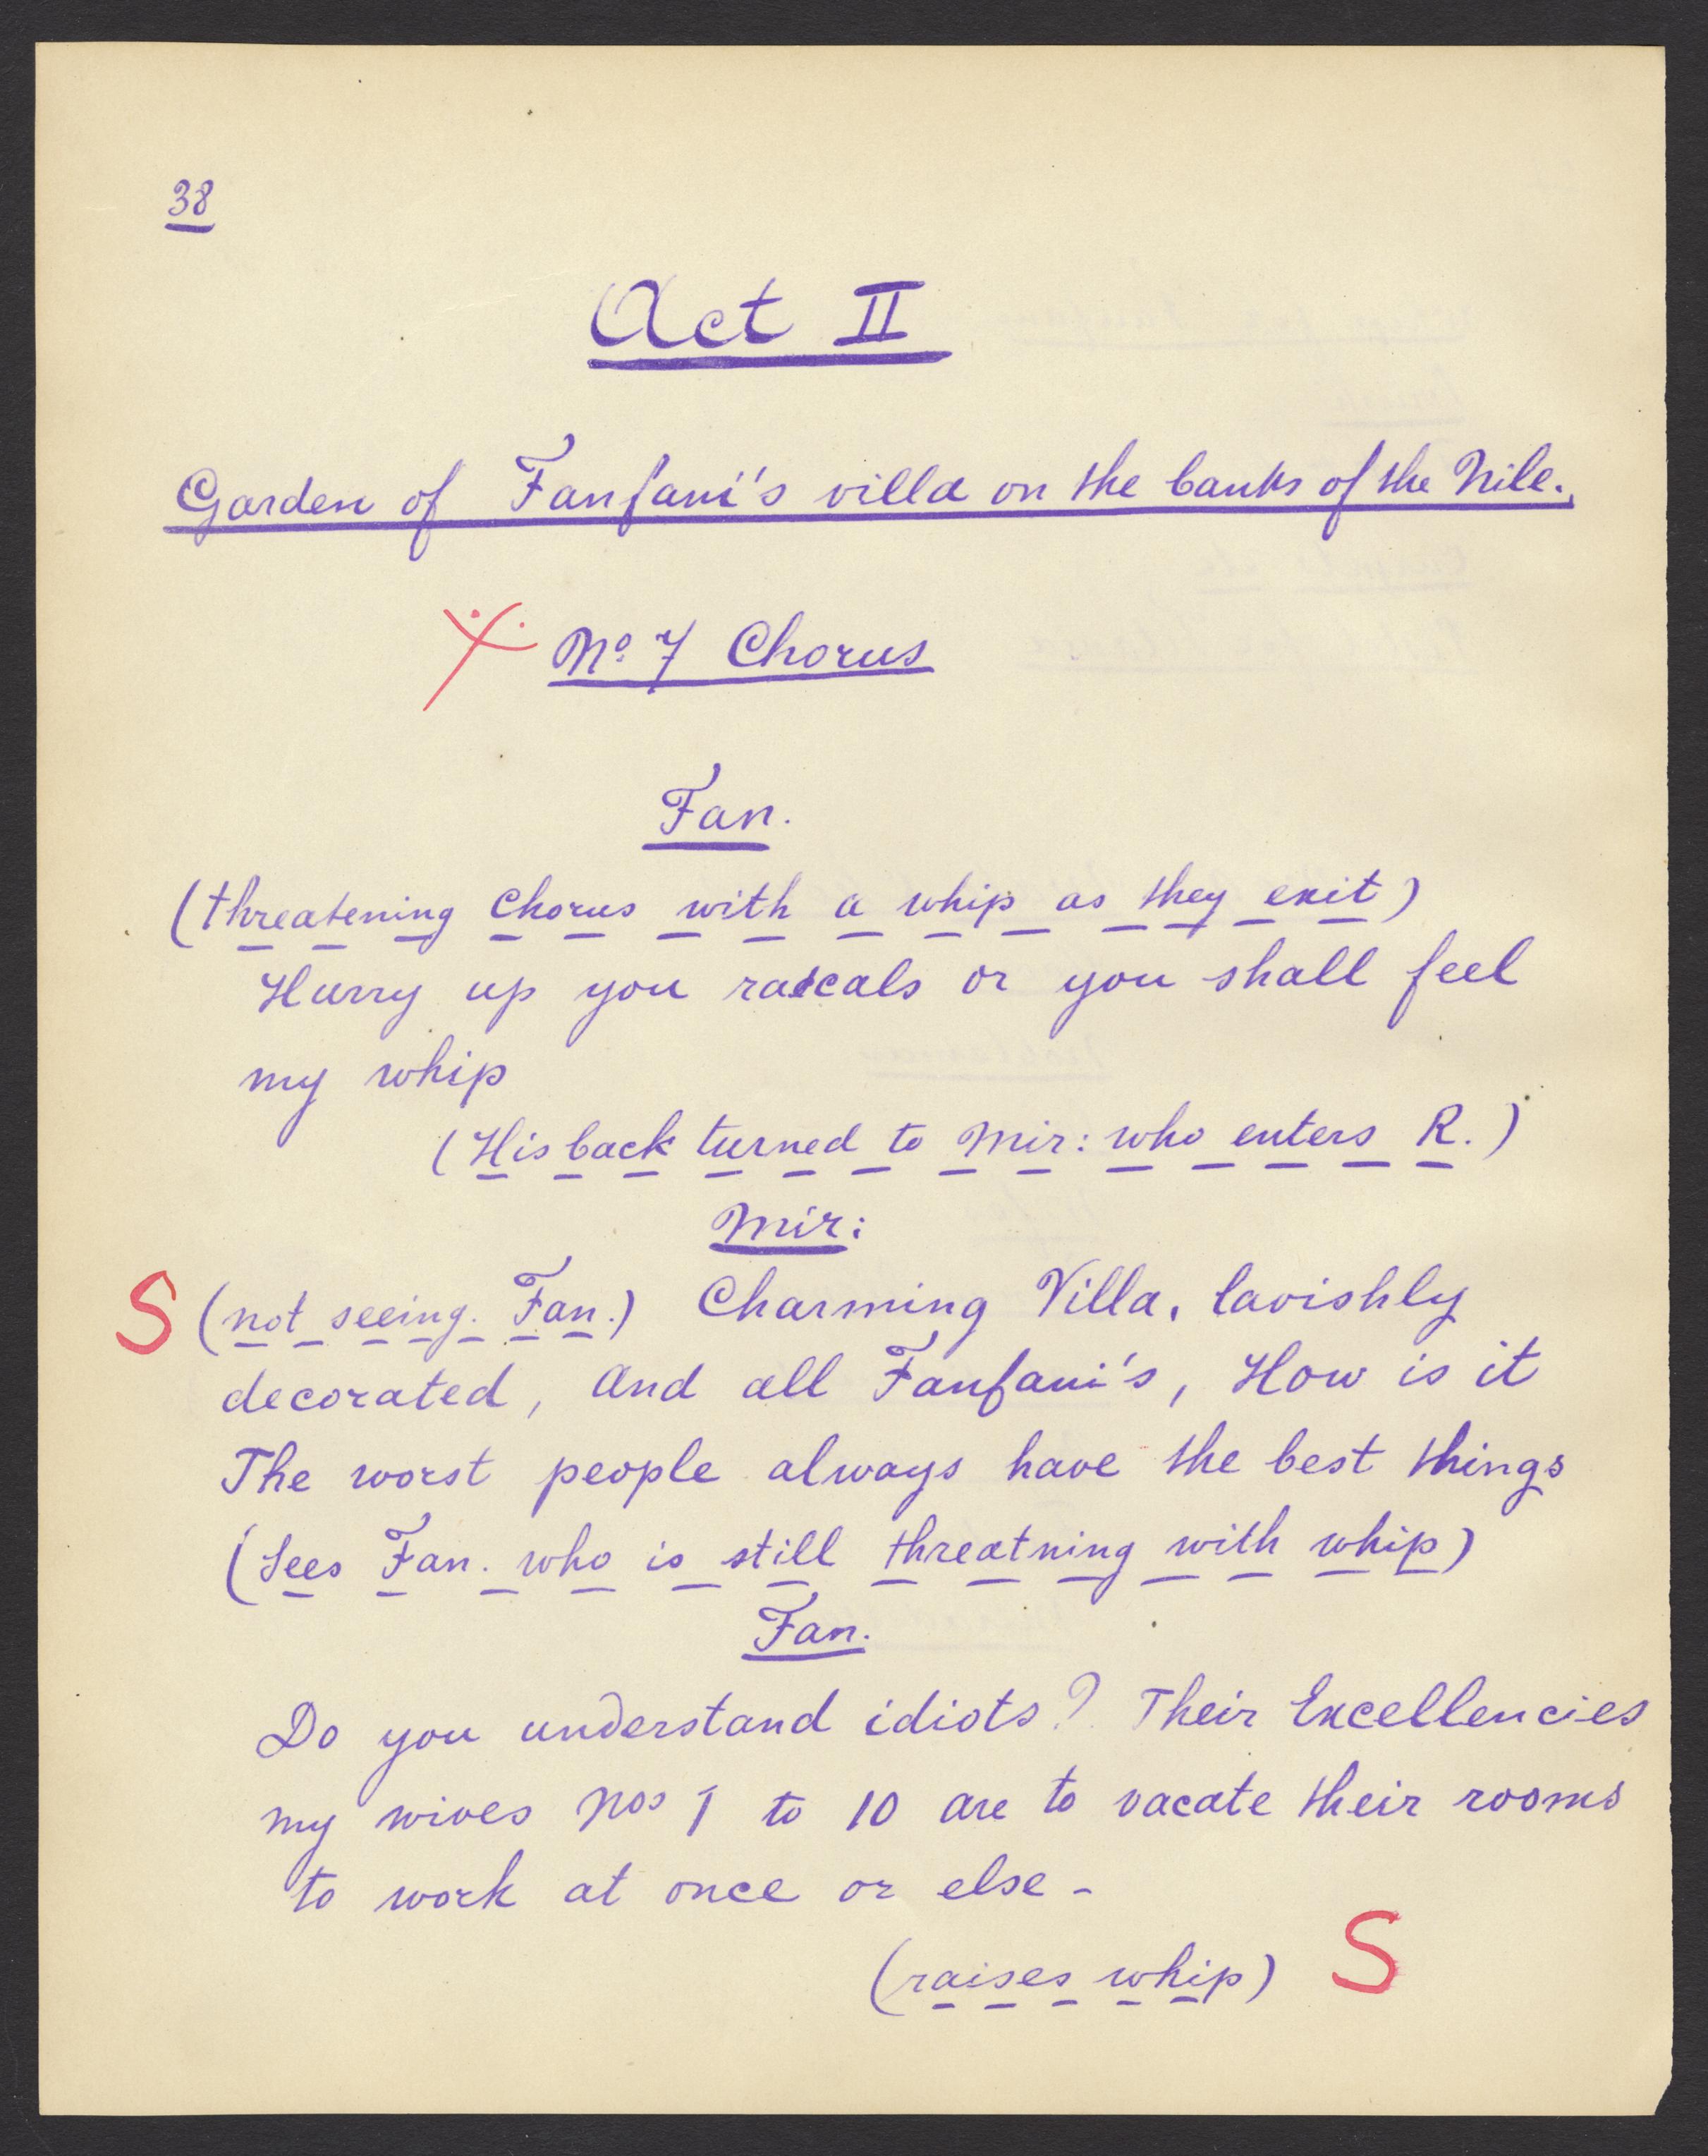 38
Act II
Garden of Fanfani's villa on the banks of the Nile.
Nº 7 Chorus
Fan.
(threatening Chorus with a whip as they exit)
Hurry up you rascals or you shall feel
my whip
(His back turned to Mir: who enters R.)
Mir:
S (not seeing. Fan.) Charming Villa, lavishly
decorated, And all Fanfani's, How is it
The worst people always have the best things
(Sees Fan. who is still threatning with whip)
Fan.
Do you understand idiots? Their Excellencies
my wives Nos 1 to 10 are to vacate their rooms
to work at once or else -
(raises whip) S